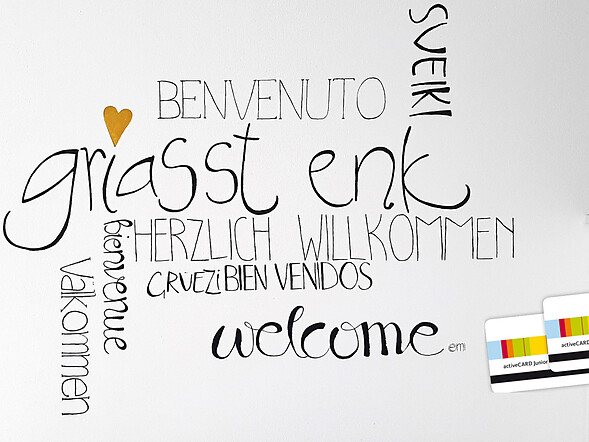 SVEIKI
BENVENUTO
griasst enk
HERZLICH WILLKOMMEN
bienvenue
GRÜEZi BIEN VENIDOS
Välkommen
welcome
emi
activeCARD Junior
activeCARD